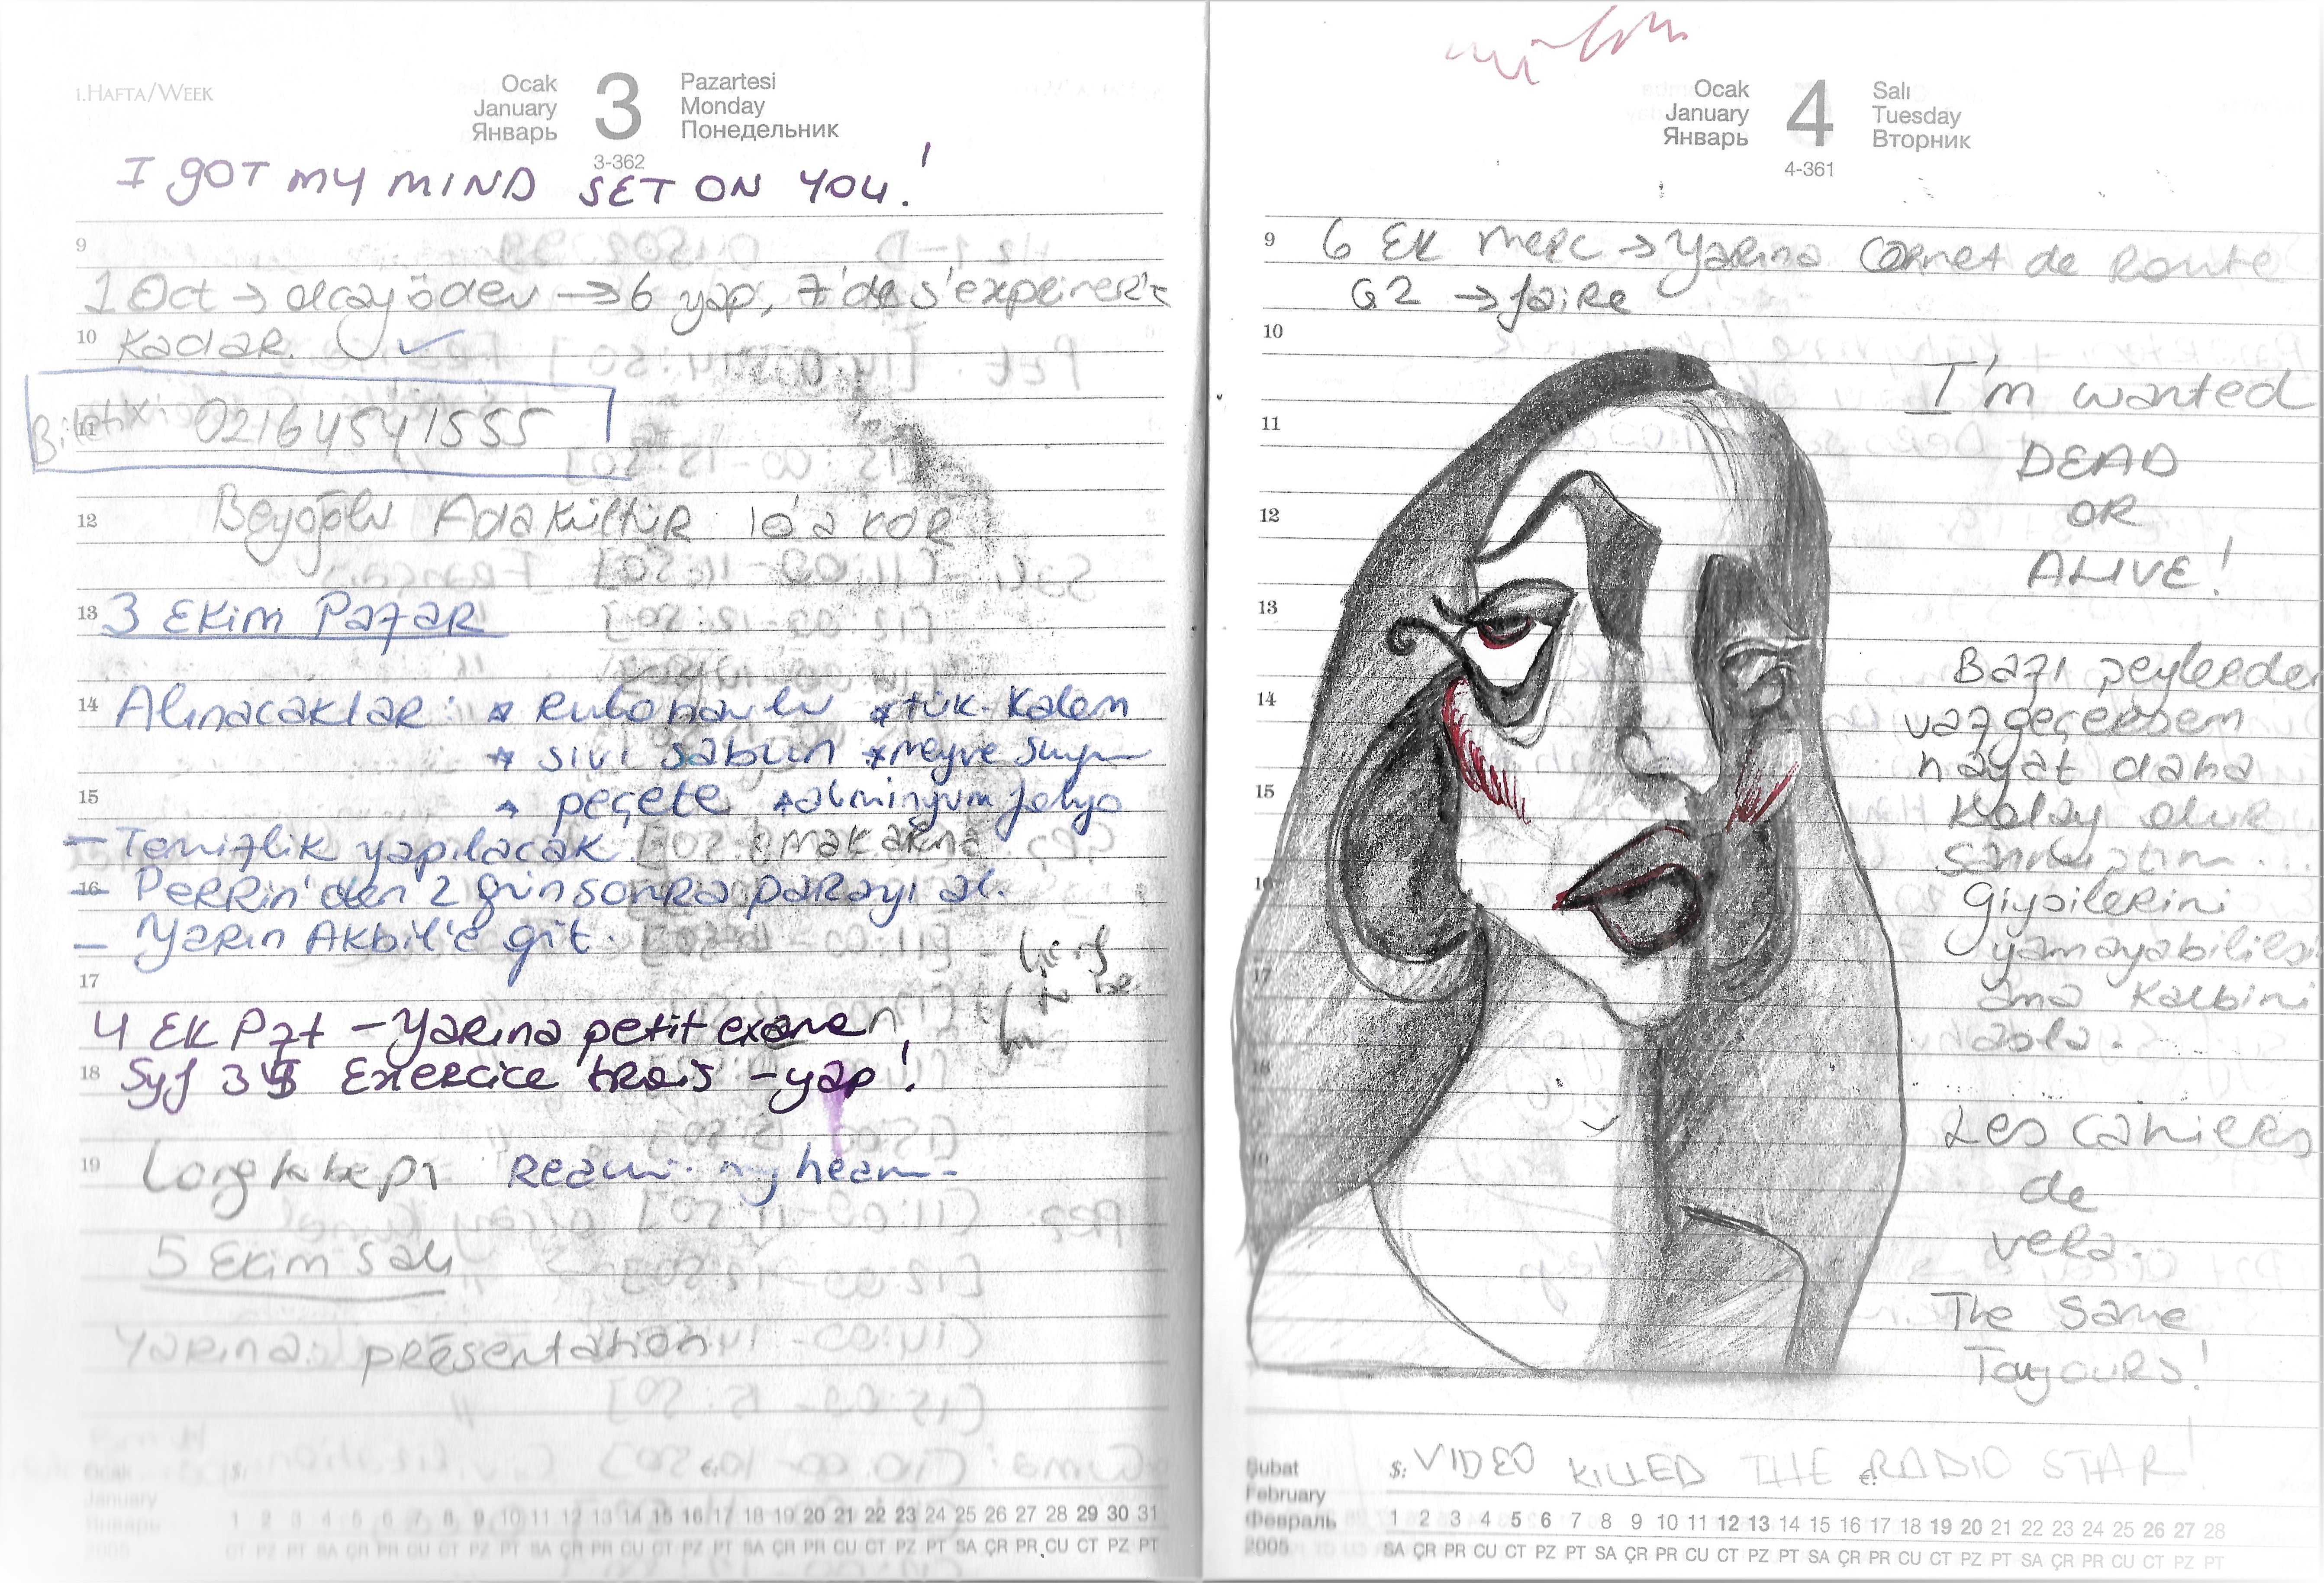 1.HAFTA/WEEK
Ocak
January
Январь
3
3-362
Pazartesi
Monday
Понедельник
I GOT MY MIND SET ON YOU!
9
1 Oct → olcay ödev → 6 yap, 7'de s'exprimer'e
10 kadar. ✓
11 Biletix: 02164541555
12 Beyoğlu Ada Kültür 10'a kdr
13 3 EKİM PAZAR
14 Alınacaklar: * Rulo havlu * tük. Kalem
* sıvı sabun * meyve suyu
15 * peçete * alminyum folyo
- Temizlik yapılacak. * makarna
16 - Perrin'den 2 gün sonra parayı al.
- Yarın Akbil'e git.
17
4 EK Pzt - Yarına petit examen
18 Syf 35 Exercice trois - yap!
19
5 Ekim Salı
Yarına: présentation
Ocak
January
Январь
2005
$:
€:
1 2 3 4 5 6 7 8 9 10 11 12 13 14 15 16 17 18 19 20 21 22 23 24 25 26 27 28 29 30 31
CT PZ PT SA ÇR PR CU CT PZ PT SA ÇR PR CU CT PZ PT SA ÇR PR CU CT PZ PT SA ÇR PR CU CT PZ PT
Ocak
January
Январь
4
4-361
Salı
Tuesday
Вторник
9 6 EK Merc → Yarına Carnet de Route
G2 → faire
10
I'm wanted
11
DEAD
12 OR
ALIVE!
13
Bazı şeylerden
14 vazgeçersem
hayat daha
15 kolay olur
sanmıştım...
16 Giysilerini
yamayabilirsin
17 ama kalbini
asla.
18
Les cahiers
19 de
vera.
The Same
Toujours!
$: VIDEO KILLED THE €: RADIO STAR!
Şubat
February
Февраль
2005
1 2 3 4 5 6 7 8 9 10 11 12 13 14 15 16 17 18 19 20 21 22 23 24 25 26 27 28
SA ÇR PR CU CT PZ PT SA ÇR PR CU CT PZ PT SA ÇR PR CU CT PZ PT SA ÇR PR CU CT PZ PT